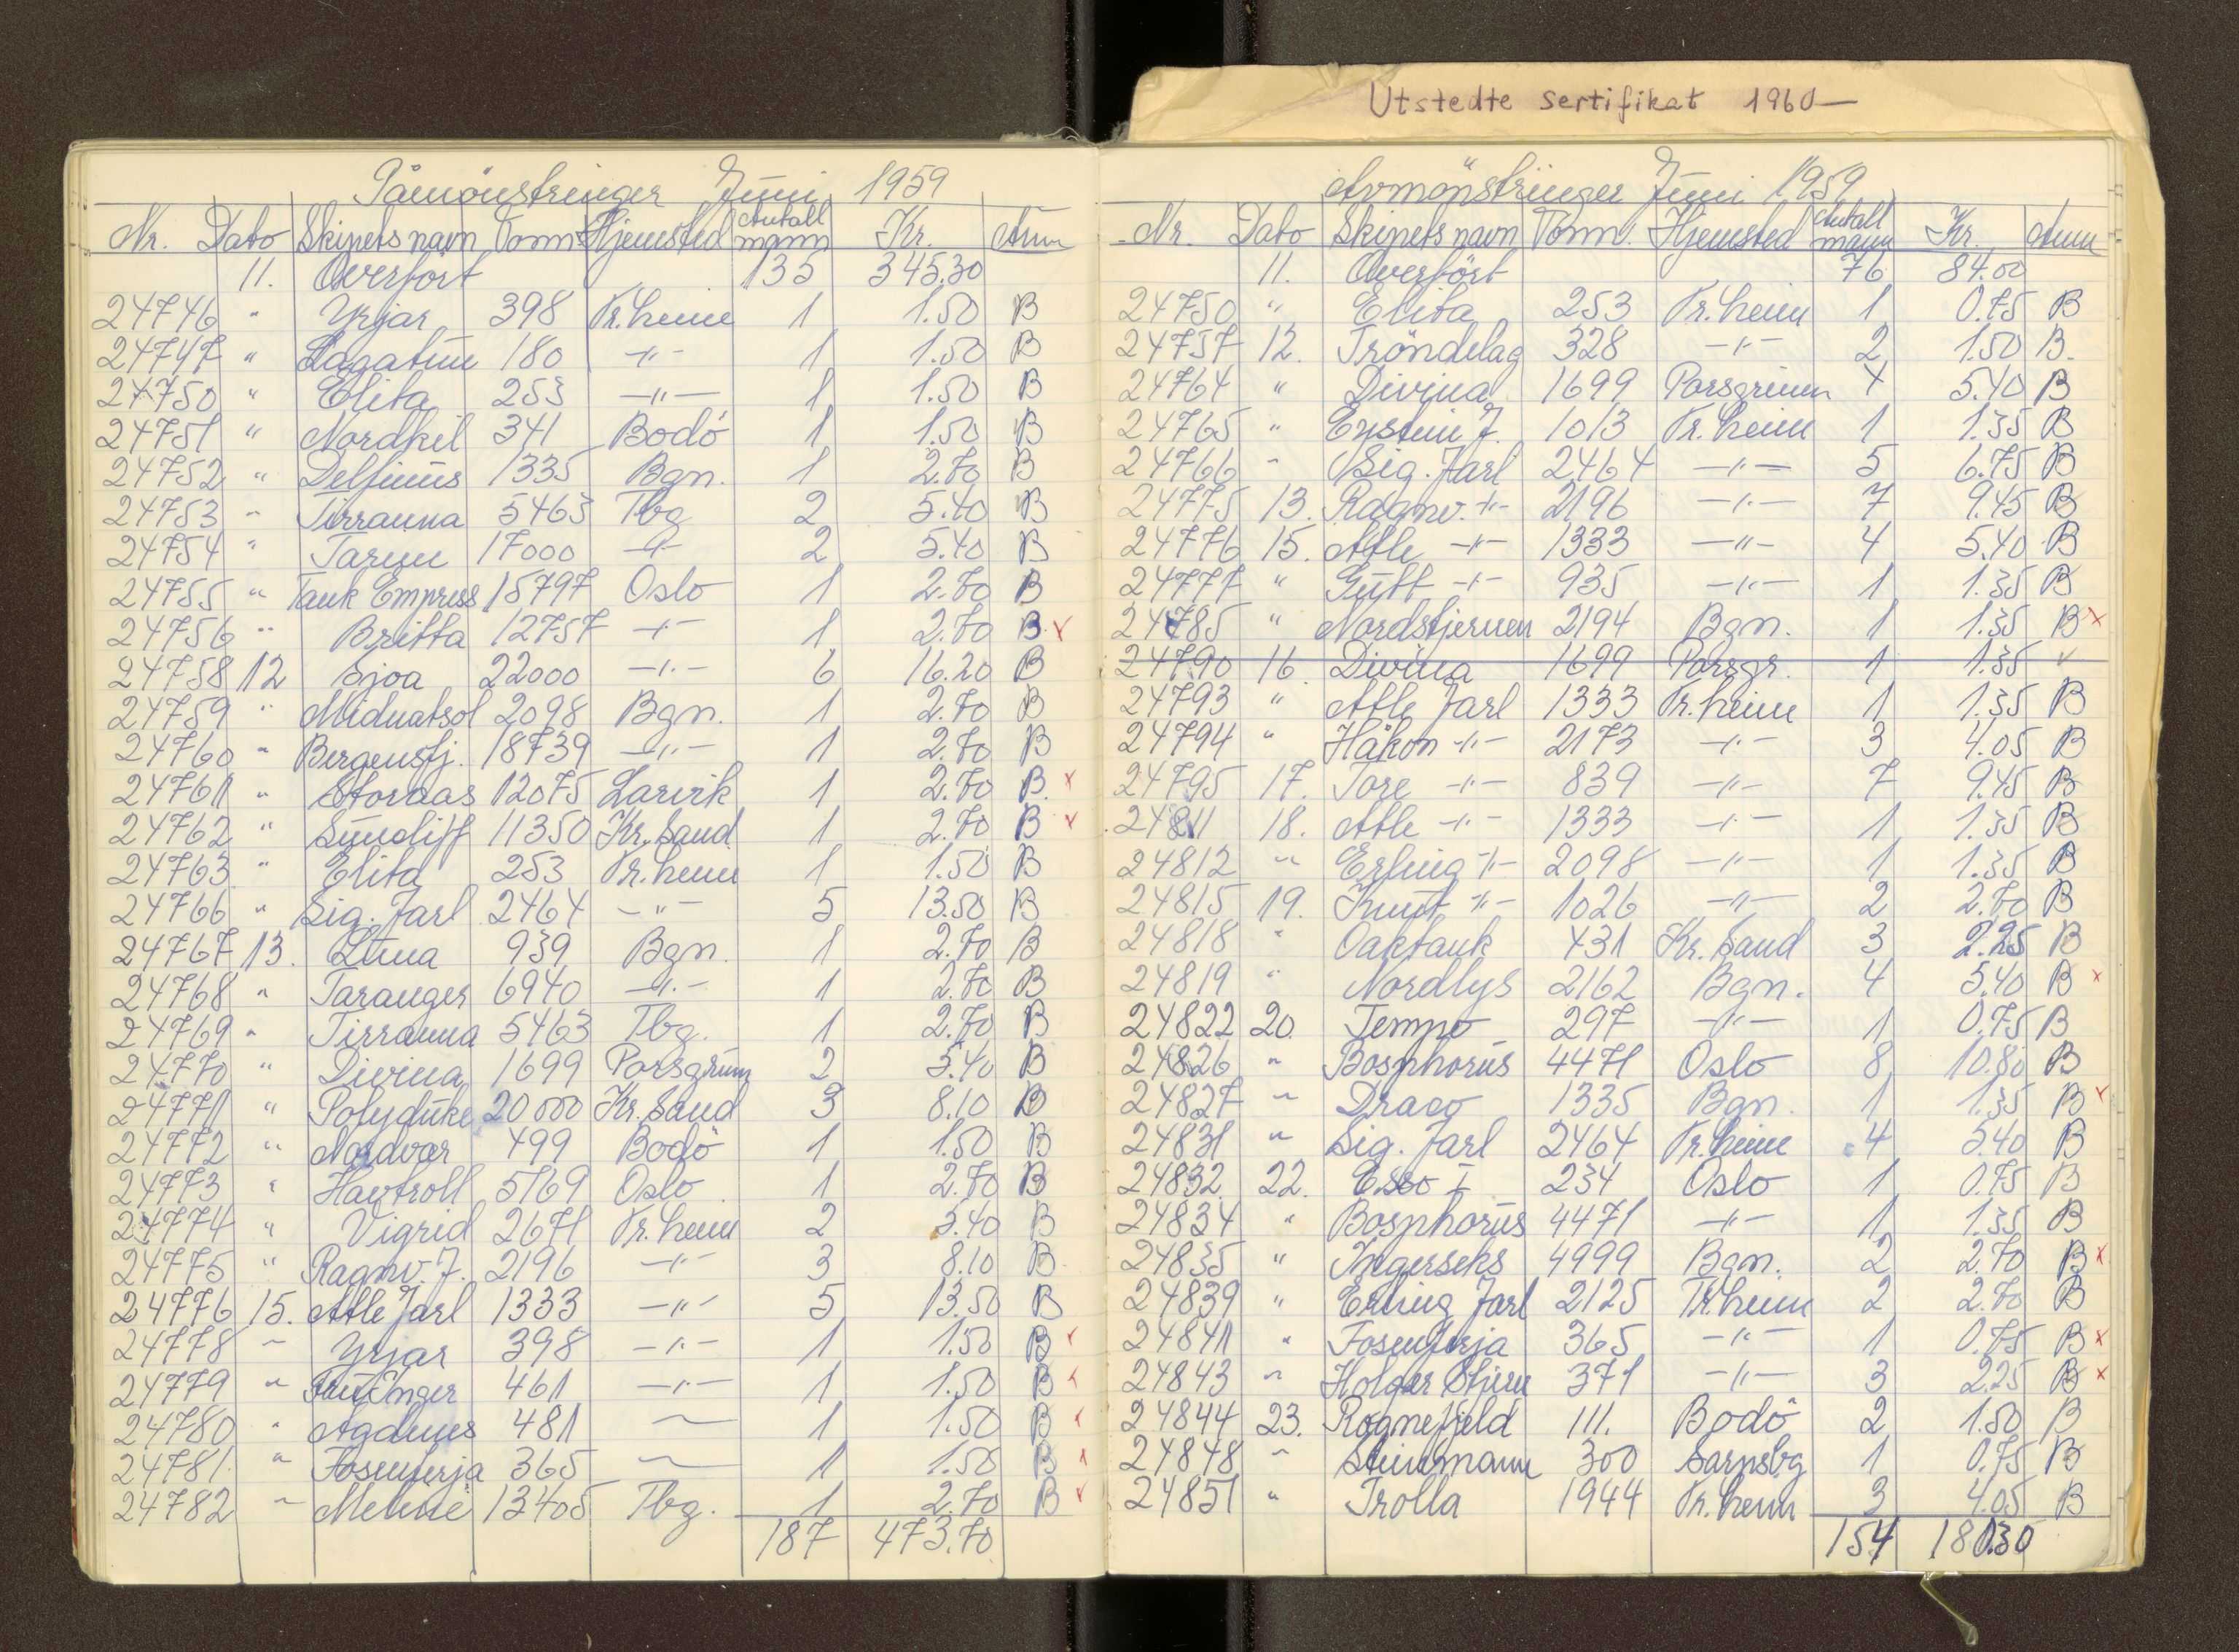 Utstedte sertifikat 1960—
Påmönstringer Juni 1959
Nr. Dato Skipets navn Tonn. Hjemsted Antall mann Kr. Anm
11. Overfört 135 345.30
24746 " Yrjar 398 Tr.heim 1 1.50 B
24747 " Lagatun 180 -"- 1 1.50 B
24750 " Elita 253 -"- 1 1.50 B
24751 " Nordkil 341 Bodö 1 1.50 B
24752 " Delfinus 1335 Bgn. 1 2.70 B
24753 " Tirranna 5463 Tbg 2 5.40 B
24754 " Taron 17000 -"- 2 5.40 B
24755 " Tank Empress 15797 Oslo 1 2.70 B
24756 " Britta 12757 -"- 1 2.70 B. x
24758 12 Sjoa 22000 -"- 6 16.20 B
24759 " Midnatsol 2098 Bgn. 1 2.70 B
24760 " Bergensfj. 18739 -"- 1 2.70 B
24761 " Storaas 12075 Larvik 1 2.70 B. x
24762 " Suncliff 11350 Kr.sand 1 2.70 B x
24763 " Elita 253 Tr.heim 1 1.50 B
24766 " Sig. Jarl 2464 -"- 5 13.50 B
24767 13. Luna 939 Bgn. 1 2.70 B
24768 " Taranger 6940 -"- 1 2.70 B
24769 " Tirranna 5463 Tbg. 1 2.70 B
24770 " Divina 1699 Porsgrunn 2 5.40 B
24771 " Polyduke 20000 Kr.sand 3 8.10 B
24772 " Nordvar 499 Bodö 1 1.50 B
24773 " Havtroll 5769 Oslo 1 2.70 B
24774 " Vigrid 2671 Tr.heim 2 5.40 B
24775 " Ragnv. J. 2196 -"- 3 8.10 B
24776 15. Atle Jarl 1333 -"- 5 13.50 B
24778 " Yrjar 398 -"- 1 1.50 B x
24779 " Fru Inger 461 -"- 1 1.50 B x
24780 " Agdenes 481 — 1 1.50 B x
24781. " Fosenferja 365 — 1 1.50 B x
24782 " Meline 13405 Tbg. 1 2.70 B x
187 473.70
Avmönstringer Juni 1959
Nr. Dato Skipets navn Tonn. Hjemsted Antall mann Kr. Anm
11. Overfört 76 84.00
24750 " Elita 253 Tr.heim 1 0.75 B
24757 12. Tröndelag 328 -"- 2 1.50 B.
24764 " Divina 1699 Porsgrunn 4 5.40 B
24765 " Eystein J. 1013 Tr.heim 1 1.35 B
24766 " Sig. Jarl 2464 -"- 5 6.75 B
24775 13. Ragnv. -"- 2196 -"- 7 9.45 B
24776 15. Atle -"- 1333 -"- 4 5.40 B
24777 " Gutt -"- 935 -"- 1 1.35 B
24785 " Nordstjernen 2194 Bgn. 1 1.35 B x
24790 16 Divina 1699 Porsgr. 1 1.35
24793 " Atle Jarl 1333 Tr.heim 1 1.35 B
24794 " Håkon -"- 2173 -"- 3 4.05 B
24795 17. Tore -"- 839 -"- 7 9.45 B
24811 18. Atle -"- 1333 -"- 1 1.35 B
24812 " Erling -"- 2098 -"- 1 1.35 B
24815 19. Knut -"- 1026 -"- 2 2.70 B
24818 " Oaktank 431 Kr.sand 3 2.25 B
24819 " Nordlys 2162 Bgn. 4 5.40 B x
24822 20. Tempo 297 -"- 1 0.75 B
24826 " Bosphorus 4471 Oslo 8 10.80 B
24827 " Draco 1335 Bgn. 1 1.35 B x
24831 " Sig. Jarl 2464 Tr.heim 4 5.40 B
24832 22. Esso I 234 Oslo 1 0.75 B
24834 " Bosphorus 4471 -"- 1 1.35 B
24835 " Ingerseks 4999 Bgn. 2 2.70 B x
24839 " Erling Jarl 2125 Tr.heim 2 2.70 B
24841 " Fosenferja 365 -"- 1 0.75 B x
24843 " Holger Stjern 371 -"- 3 2.25 B x
24844 23. Rognefjeld 111. Bodö 2 1.50 B
24848 " Steinmann 300 Sarpsbg 1 0.75 B
24851 " Trolla 1944 Tr.heim 3 4.05 B
154 180.30